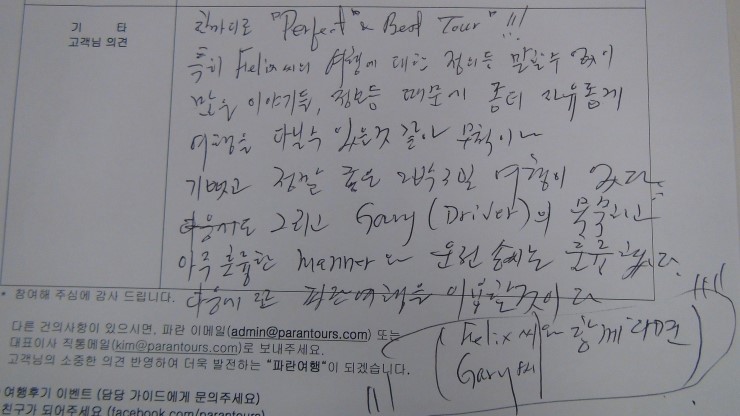 기 타
고객님 의견
한마디로 "Perfect" & Best Tour" !!!
특히 Felix씨의 여행에 대한 정의등 말할수 없이
많은 이야기들, 정보등 때문에 좀더 자유롭게
여행을 다닐수 있는것 같아 무척이나
기뻤고 정말 좋은 2박3일 여행이 었다.
그리고 Gary (Driver)의 묵묵하고
아주 훌륭한 매너와 운전 솜씨는 훌륭했다.
다음에 또 파란여행을 이용할것이다
(Felix씨와 함께라면
Gary씨
* 참여해 주심에 감사 드립니다.
다른 건의사항이 있으시면, 파란 이메일(admin@parantours.com) 또는
대표이사 직통메일(kim@parantours.com)로 보내주세요.
고객님의 소중한 의견 반영하여 더욱 발전하는 "파란여행"이 되겠습니다.
여행후기 이벤트 (담당 가이드에게 문의주세요)
친구가 되어주세요 (facebook.com/parantours)